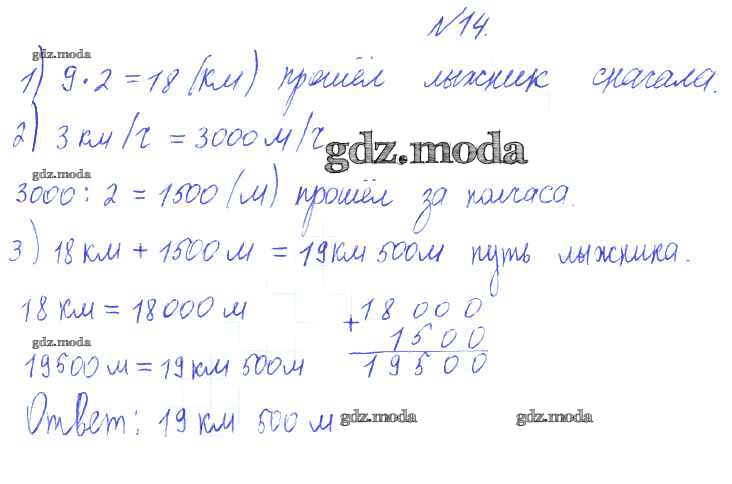 №14.
gdz.moda
1) 9·2=18 (км) прошёл лыжник сначала.
2) 3 км/ч = 3000 м/ч
gdz.moda
gdz.moda
3000:2=1500 (м) прошёл за полчаса.
3) 18 км + 1500 м = 19 км 500 м путь лыжника.
18 км = 18000 м
gdz.moda
19500 м = 19 км 500 м
+ 18 000
1500
19500
Ответ: 19 км 500 м
gdz.moda
gdz.moda